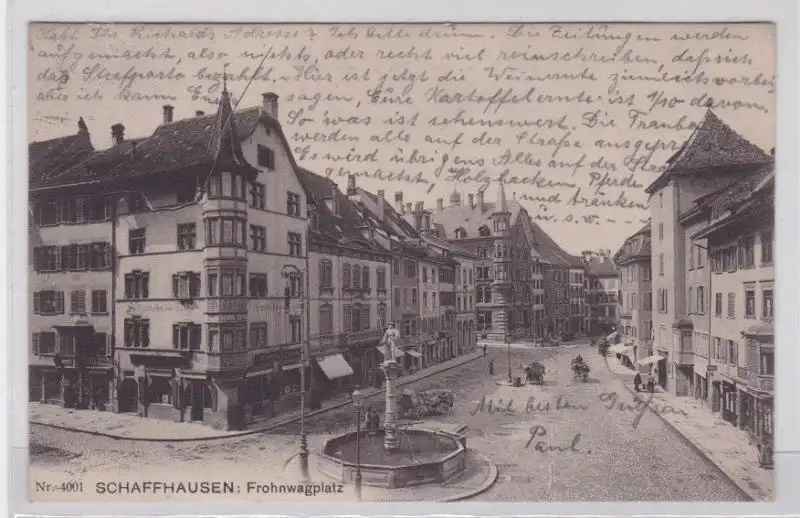 Habt Ihr Richards Adresse? Ich bitte drum. Die Zeitungen werden
aufgemacht, also nichts oder recht viel reinschreiben, daß sich
das Strafporto bezahlt. Hier ist jetzt die Weinernte ziemlich vorbei,
aber ich kann Euch sagen, Eure Kartoffelernte ist 1/10 davon.
So was ist sehenswert. Die Trauben
werden alle auf der Straße ausgepreßt
Es wird übrigens Alles auf der Straße
gemacht, Holzhacken, Pferde
und tränken
u. s. w.
Mit besten Grüßen
Paul.
Nr. 4001 SCHAFFHAUSEN: Frohnwagplatz